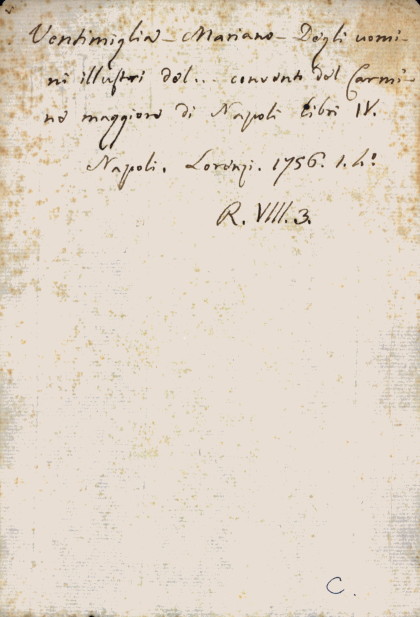 Ventimiglia - Mariano - Degli uomi-
ni illustri del... convento del Carmi-
ne maggiore di Napoli libri IV.
Napoli. Lorenzi. 1756. 1. 4°
R. VIII. 3.
C.